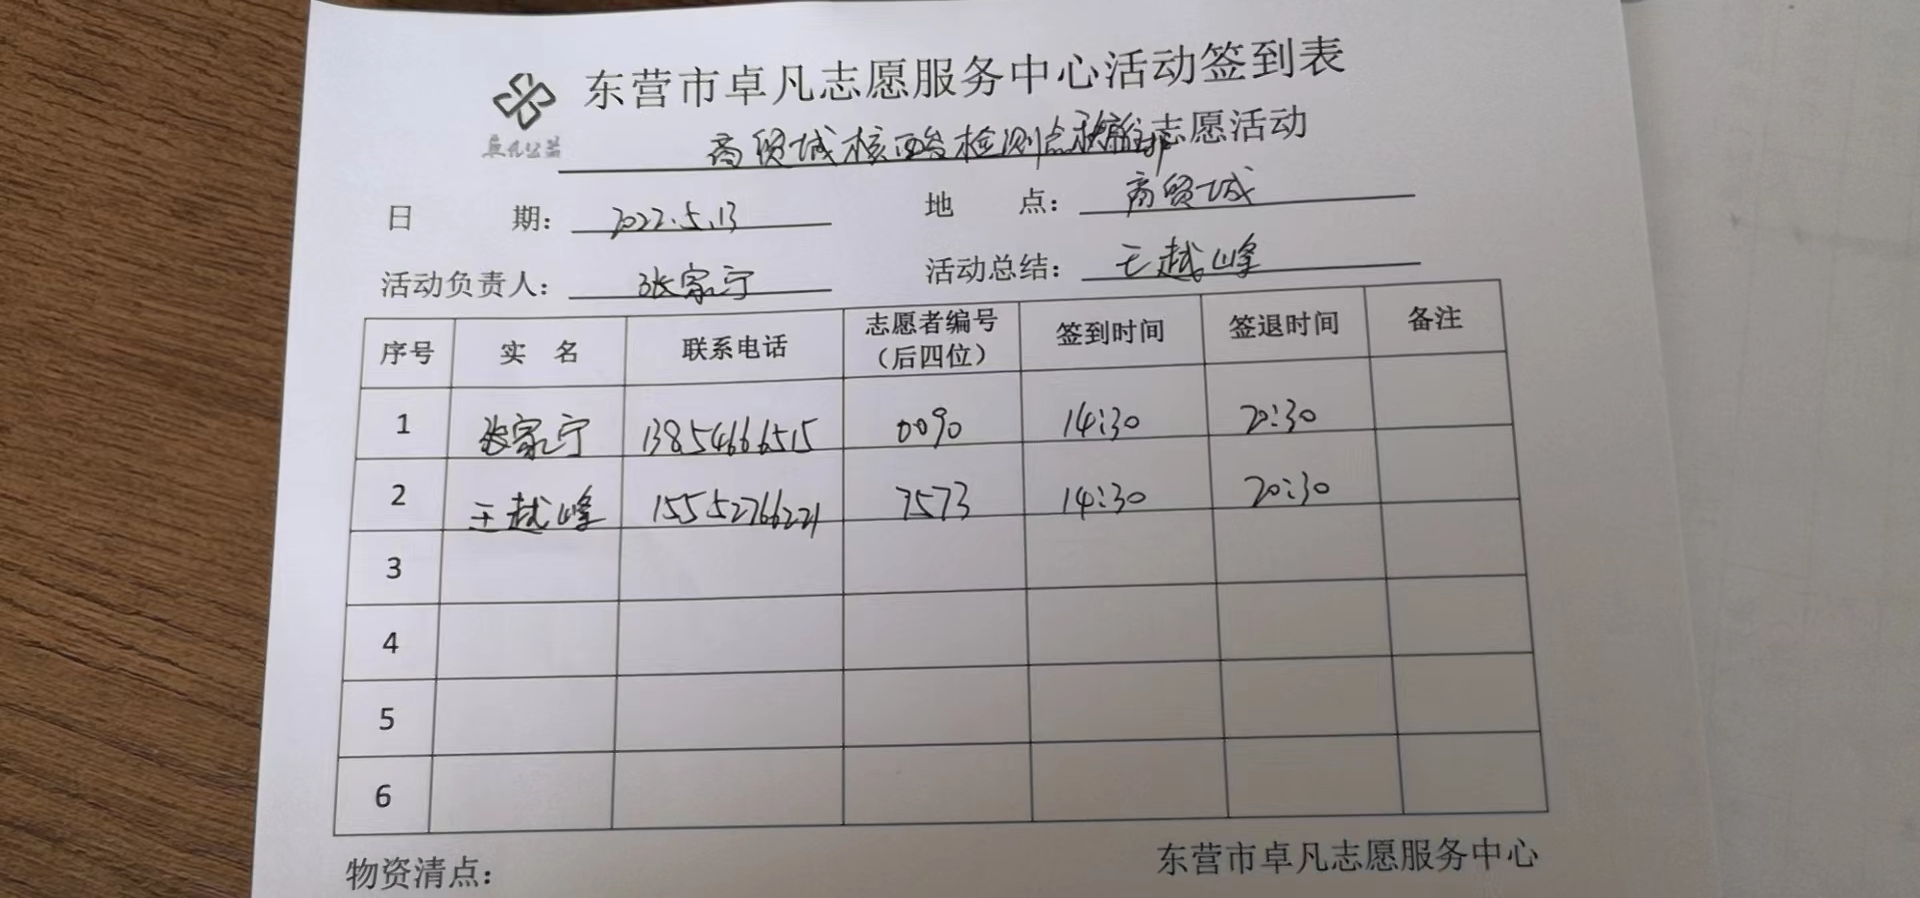 东营市卓凡志愿服务中心活动签到表
卓凡公益
商贸城核酸检测点秩序志愿活动
日 期： 2022.5.13 地 点： 商贸城
活动负责人： 张家宁 活动总结： 王越峰
序号 实 名 联系电话 志愿者编号（后四位） 签到时间 签退时间 备注
1 张家宁 13854666515 0090 14:30 20:30
2 王越峰 15552766221 7573 14:30 20:30
3
4
5
6
物资清点： 东营市卓凡志愿服务中心